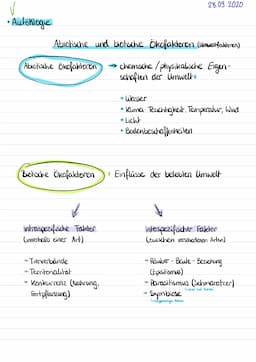 28.03.2020
• Autökologie
Abiotische und biotische Ökofaktoren (Umweltfaktoren)
Abiotische Ökofaktoren → chemische / physikalische Eigen-
schaften der Umwelt
• Wasser
• Klima: Feuchtigkeit, Temperatur, Wind
• Licht
• Bodenbeschaffenheiten
Biotische Ökofaktoren : Einflüsse der belebten Umwelt
intraspezifische Faktor
(innerhalb einer Art)
- Tierverbände
- Territorialität
- Konkurrenz (Nahrung,
Fortpflanzung)
interspezifischer Faktor
(zwischen verschiedenen Arten)
- Räuber - Beute - Beziehung
- Parasitismus (Schmarotzer)
- Symbiose